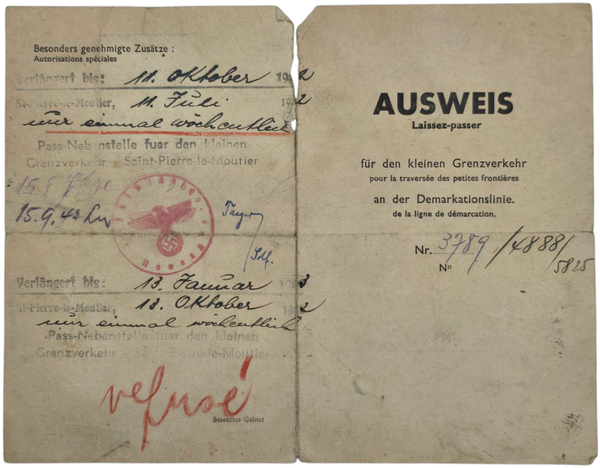 Besonders genehmigte Zusätze :
Autorisations spéciales
Verlängert bis: 11. Oktober 1942
St-Pierre-le-Moutier, 11. Juli 1942
nur einmal wöchentlich
Pass-Nebenstelle fuer den kleinen
Grenzverkehr - Saint-Pierre-le-Moutier
15.8
15.9.42
Verlängert bis: 13. Januar 3
St-Pierre-le-Moutier, 13. Oktober 2
nur einmal wöchentlich
Pass-Nebenstelle fuer den kleinen
Grenzverkehr - Saint-Pierre-le-Moutier
refusé
Besetztes Gebiet
AUSWEIS
Laissez-passer
für den kleinen Grenzverkehr
pour la traversée des petites frontières
an der Demarkationslinie.
de la ligne de démarcation.
Nr. 3789/4888/
5825
No